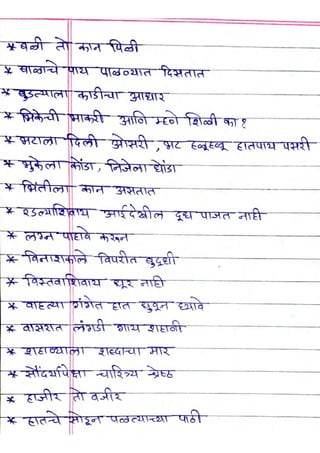 * बळी तो कान पिळी
* बाळाचे पाय पाळण्यात दिसतात
* बुडत्याला काडीचा आधार
* भिकेची भाकरी आणि म्हणे शिळी का?
* भटाला दिली ओसरी, भट हळूहळू हातपाय पसरी
* भुकेला कोंडा, निजेला धोंडा
* भिंतीला कान असतात
* रडल्याशिवाय आईदेखील दूध पाजत नाही
* लग्न पाहावे करून
* विनाशकाले विपरीत बुद्धी
* विस्तवाशिवाय धूर नाही
* वाहत्या गंगेत हात धुवून घ्यावे
* वासरात लंगडी गाय शहाणी
* शहाण्याला शब्दाचा मार
* सौंदर्यापेक्षा चारित्र्य श्रेष्ठ
* हाजीर तो वजीर
* हातचे सोडून पळत्याच्या पाठी